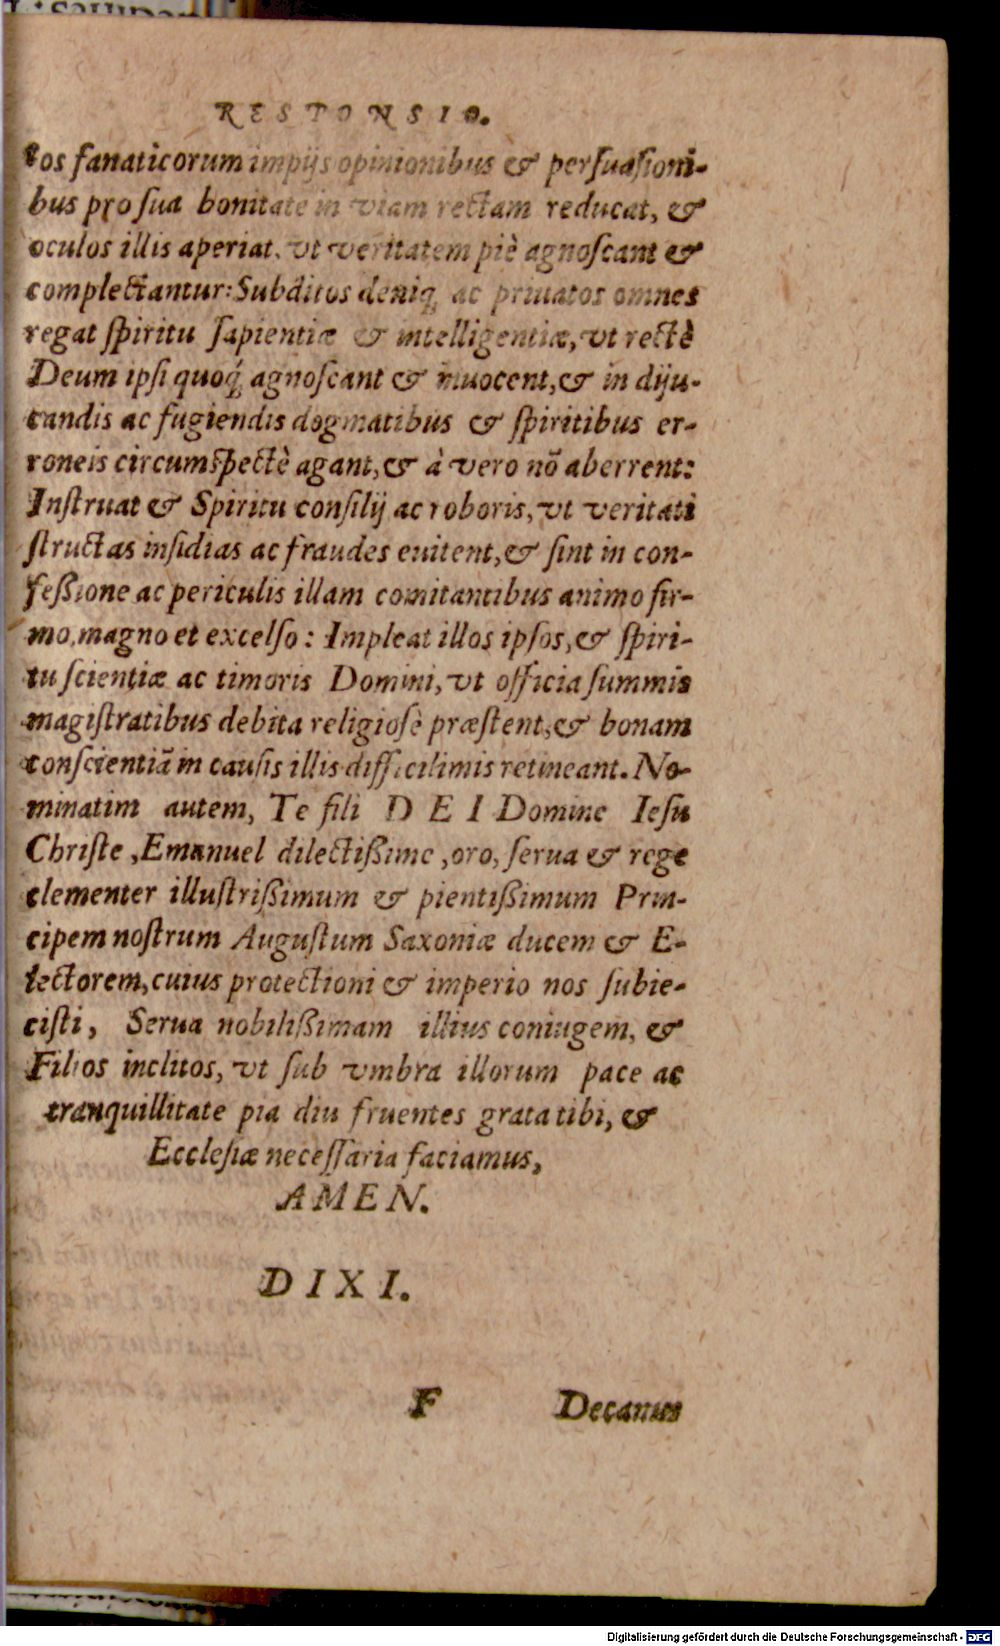 RESPONSIO.
tos fanaticorum impijs opinionibus & persuasioni-
bus pro sua bonitate in viam rectam reducat, &
oculos illis aperiat, vt veritatem piè agnoscant &
complectantur: Subditos deniq́; ac priuatos omnes
regat spiritu sapientiæ & intelligentiæ, vt rectè
Deum ipsi quoq́; agnoscant & inuocent, & in diju-
candis ac fugiendis dogmatibus & spiritibus er-
roneis circumspectè agant, & à vero nõ aberrent:
Instruat & Spiritu consilij ac roboris, vt veritati
structas insidias ac fraudes euitent, & sint in con-
feßione ac periculis illam comitantibus animo fir-
mo, magno et excelso: Impleat illos ipsos, & spiri-
tu scientiæ ac timoris Domini, vt officia summis
magistratibus debita religiosè præstent, & bonam
conscientiã in causis illis difficilimis retineant. No-
minatim autem, Te fili DEI Domine Iesu
Christe, Emanuel dilectißime, oro, serua & rege
clementer illustrißimum & pientißimum Prin-
cipem nostrum Augustum Saxoniæ ducem & E-
lectorem, cuius protectioni & imperio nos subie-
cisti, Serua nobilißimam illius coniugem, &
Filios inclitos, vt sub vmbra illorum pace ac
tranquillitate pia diu fruentes grata tibi, &
Ecclesiæ necessaria faciamus,
AMEN.
DIXI.
F Decanus
Digitalisierung gefördert durch die Deutsche Forschungsgemeinschaft - DFG